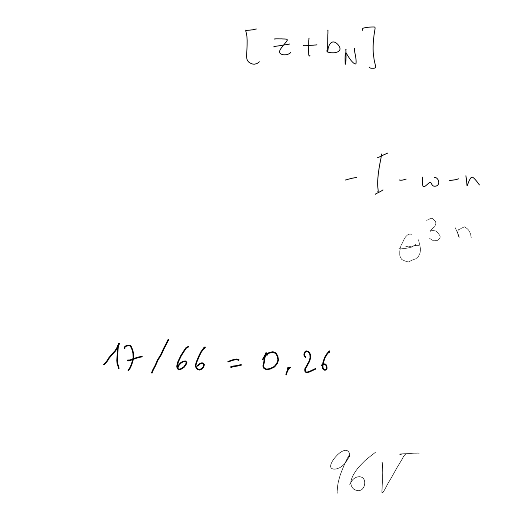 [z+b_N]
-I-w-n
θ^{3n}
17/66=0,26
96V